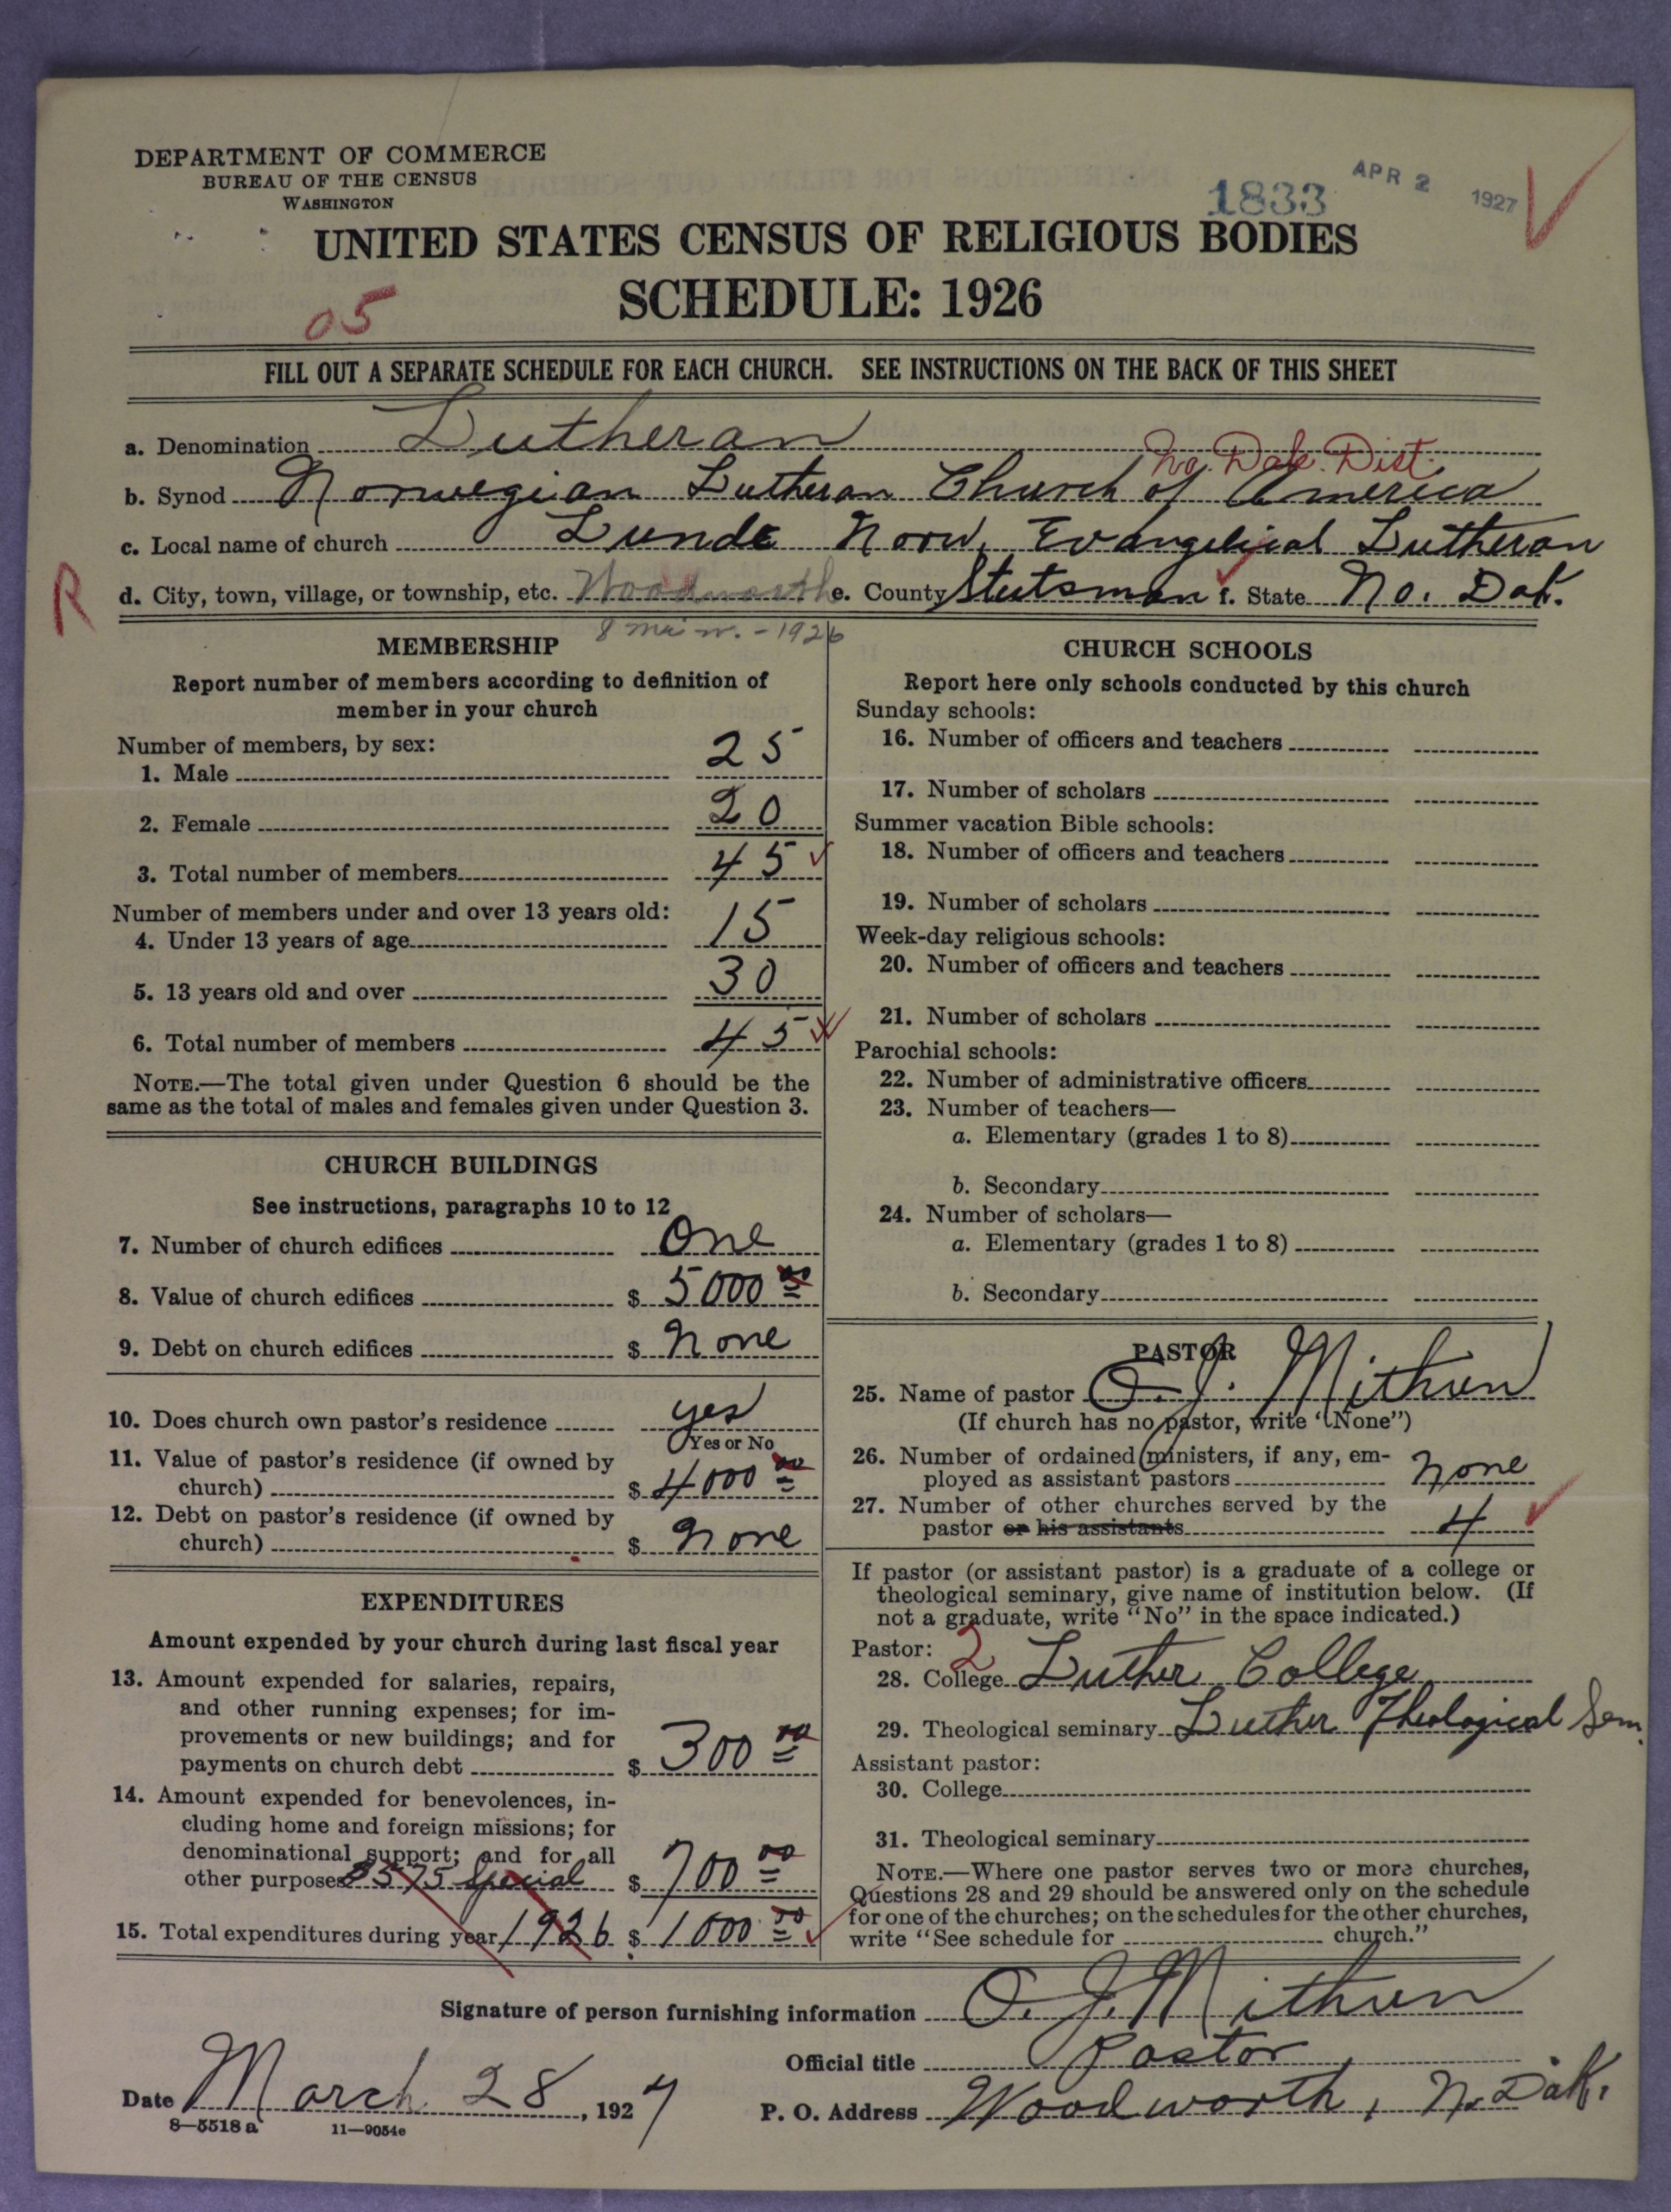 DEPARTMENT OF COMMERCE
BUREAU OF THE CENSUS
WASHINGTON
1833
APR 2 1927
UNITED STATES CENSUS OF RELIGIOUS BODIES
SCHEDULE: 1926
05
FILL OUT A SEPARATE SCHEDULE FOR EACH CHURCH. SEE INSTRUCTIONS ON THE BACK OF THIS SHEET
a. Denomination Lutheran
No. Dak. Dist.
b. Synod Norwegian Lutheran Church of America
c. Local name of church Lunde Norw. Evangelical Lutheran
R
d. City, town, village, or township, etc. Woodworth e. County Stutsman f. State No. Dak.
8 mi n. - 1926
MEMBERSHIP
Report number of members according to definition of
member in your church
Number of members, by sex:
1. Male 25
2. Female 20
3. Total number of members 45
Number of members under and over 13 years old:
4. Under 13 years of age 15
5. 13 years old and over 30
6. Total number of members 45
NOTE.—The total given under Question 6 should be the
same as the total of males and females given under Question 3.
CHURCH BUILDINGS
See instructions, paragraphs 10 to 12
7. Number of church edifices One
8. Value of church edifices $ 5000 00
9. Debt on church edifices $ None
10. Does church own pastor's residence yes
Yes or No
11. Value of pastor's residence (if owned by
church) $ 4000 00
12. Debt on pastor's residence (if owned by
church) $ None
EXPENDITURES
Amount expended by your church during last fiscal year
13. Amount expended for salaries, repairs,
and other running expenses; for im-
provements or new buildings; and for
payments on church debt $ 300 00
14. Amount expended for benevolences, in-
cluding home and foreign missions; for
denominational support; and for all
other purposes 3575 Special $ 700 00
15. Total expenditures during year 1926 $ 1000 00
CHURCH SCHOOLS
Report here only schools conducted by this church
Sunday schools:
16. Number of officers and teachers
17. Number of scholars
Summer vacation Bible schools:
18. Number of officers and teachers
19. Number of scholars
Week-day religious schools:
20. Number of officers and teachers
21. Number of scholars
Parochial schools:
22. Number of administrative officers
23. Number of teachers—
a. Elementary (grades 1 to 8)
b. Secondary
24. Number of scholars—
a. Elementary (grades 1 to 8)
b. Secondary
PASTOR
25. Name of pastor O. J. Mithun
(If church has no pastor, write "None")
26. Number of ordained ministers, if any, em-
ployed as assistant pastors None
27. Number of other churches served by the
pastor or his assistants 4
If pastor (or assistant pastor) is a graduate of a college or
theological seminary, give name of institution below. (If
not a graduate, write "No" in the space indicated.)
Pastor: 2
28. College Luther College
29. Theological seminary Luther Theological Sem.
Assistant pastor:
30. College
31. Theological seminary
NOTE.—Where one pastor serves two or more churches,
Questions 28 and 29 should be answered only on the schedule
for one of the churches; on the schedules for the other churches,
write "See schedule for church."
Signature of person furnishing information O. J. Mithun
Official title Pastor
Date March 28, 1927
P. O. Address Woodworth, N. Dak.
8—5518 a 11—9054e